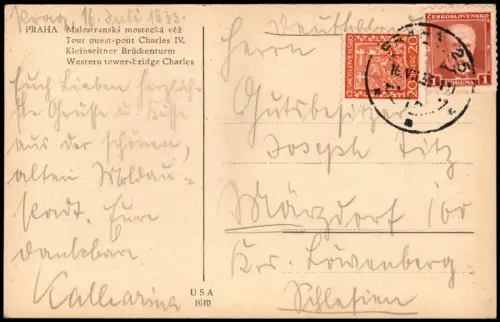 Prag, 16. Juli 1933.
PRAHA Malostranská mostecká věž
Tour ouest-pont Charles IV.
Kleinseitner Brückenturm
Western tower-bridge Charles
Euch Lieben herzlich-
ste Grüsse u. Küsse
aus der schönen,
alten Moldau-
stadt. Eure
dankbare
Katharina
USA
1610
Deutschland
Herrn
Gutsbesitzer
Joseph Titz
Märzdorf
Krs. Löwenberg
Schlesien
ČESKOSLOVENSKO
20 20
ČESKOSLOVENSKO
1 KORUNA 1
PRAHA 25